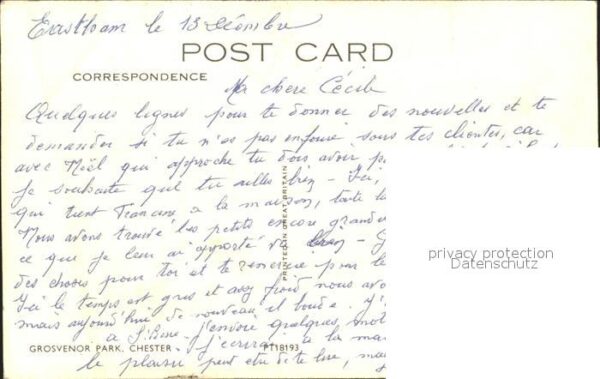 Eastham le 13 Décembre
POST CARD
CORRESPONDENCE
Ma chère Cécile
Quelques lignes pour te donner des nouvelles et te
demander si tu n'es pas enfouie sous tes clientes, car
avec Noël qui approche tu dois avoir
Je souhaite que tu ailles bien - Ici,
qui tient Francine à la maison, toute la
Nous avons trouvé les petits encore grandis
ce que je leur ai apporté va bien -
des choses pour toi et te remercie pour le
Ici le temps est gris et assez froid nous avo
mais aujourd'hui de nouveau il boude.
à j'envoie quelques mot
GROSVENOR PARK, CHESTER
j'écrirai à la ma
PT18193
le plaisir peut être de te lire,
PRINTED IN GREAT BRITAIN
privacy protection
Datenschutz